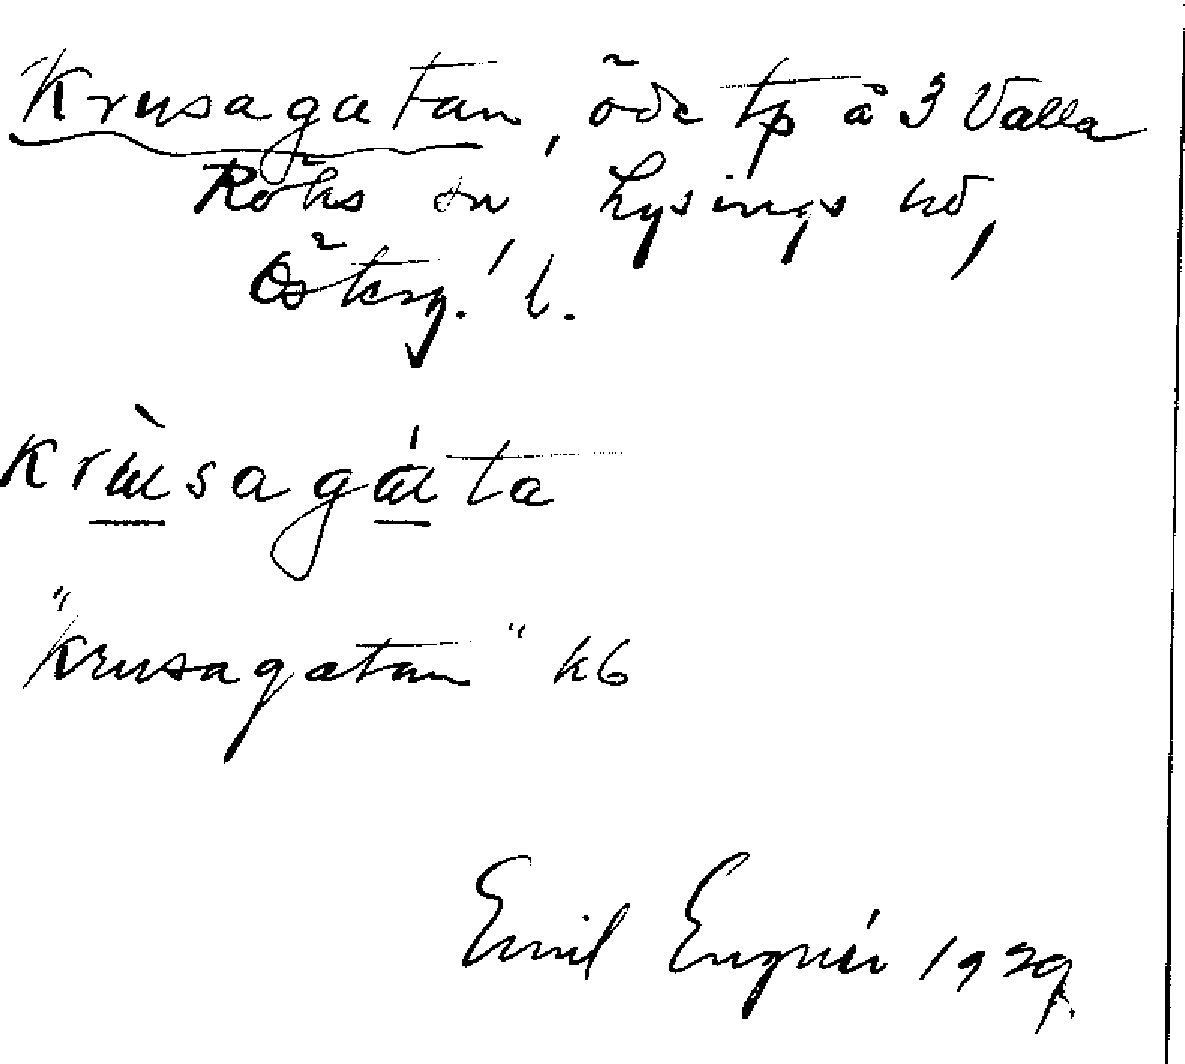 Krusagatan, öde tp å 3 Valla
Röks sn, Lysings hd,
Österg. l.
krùsagáta
"Krusagatan" kb
Emil Engnér 1929.